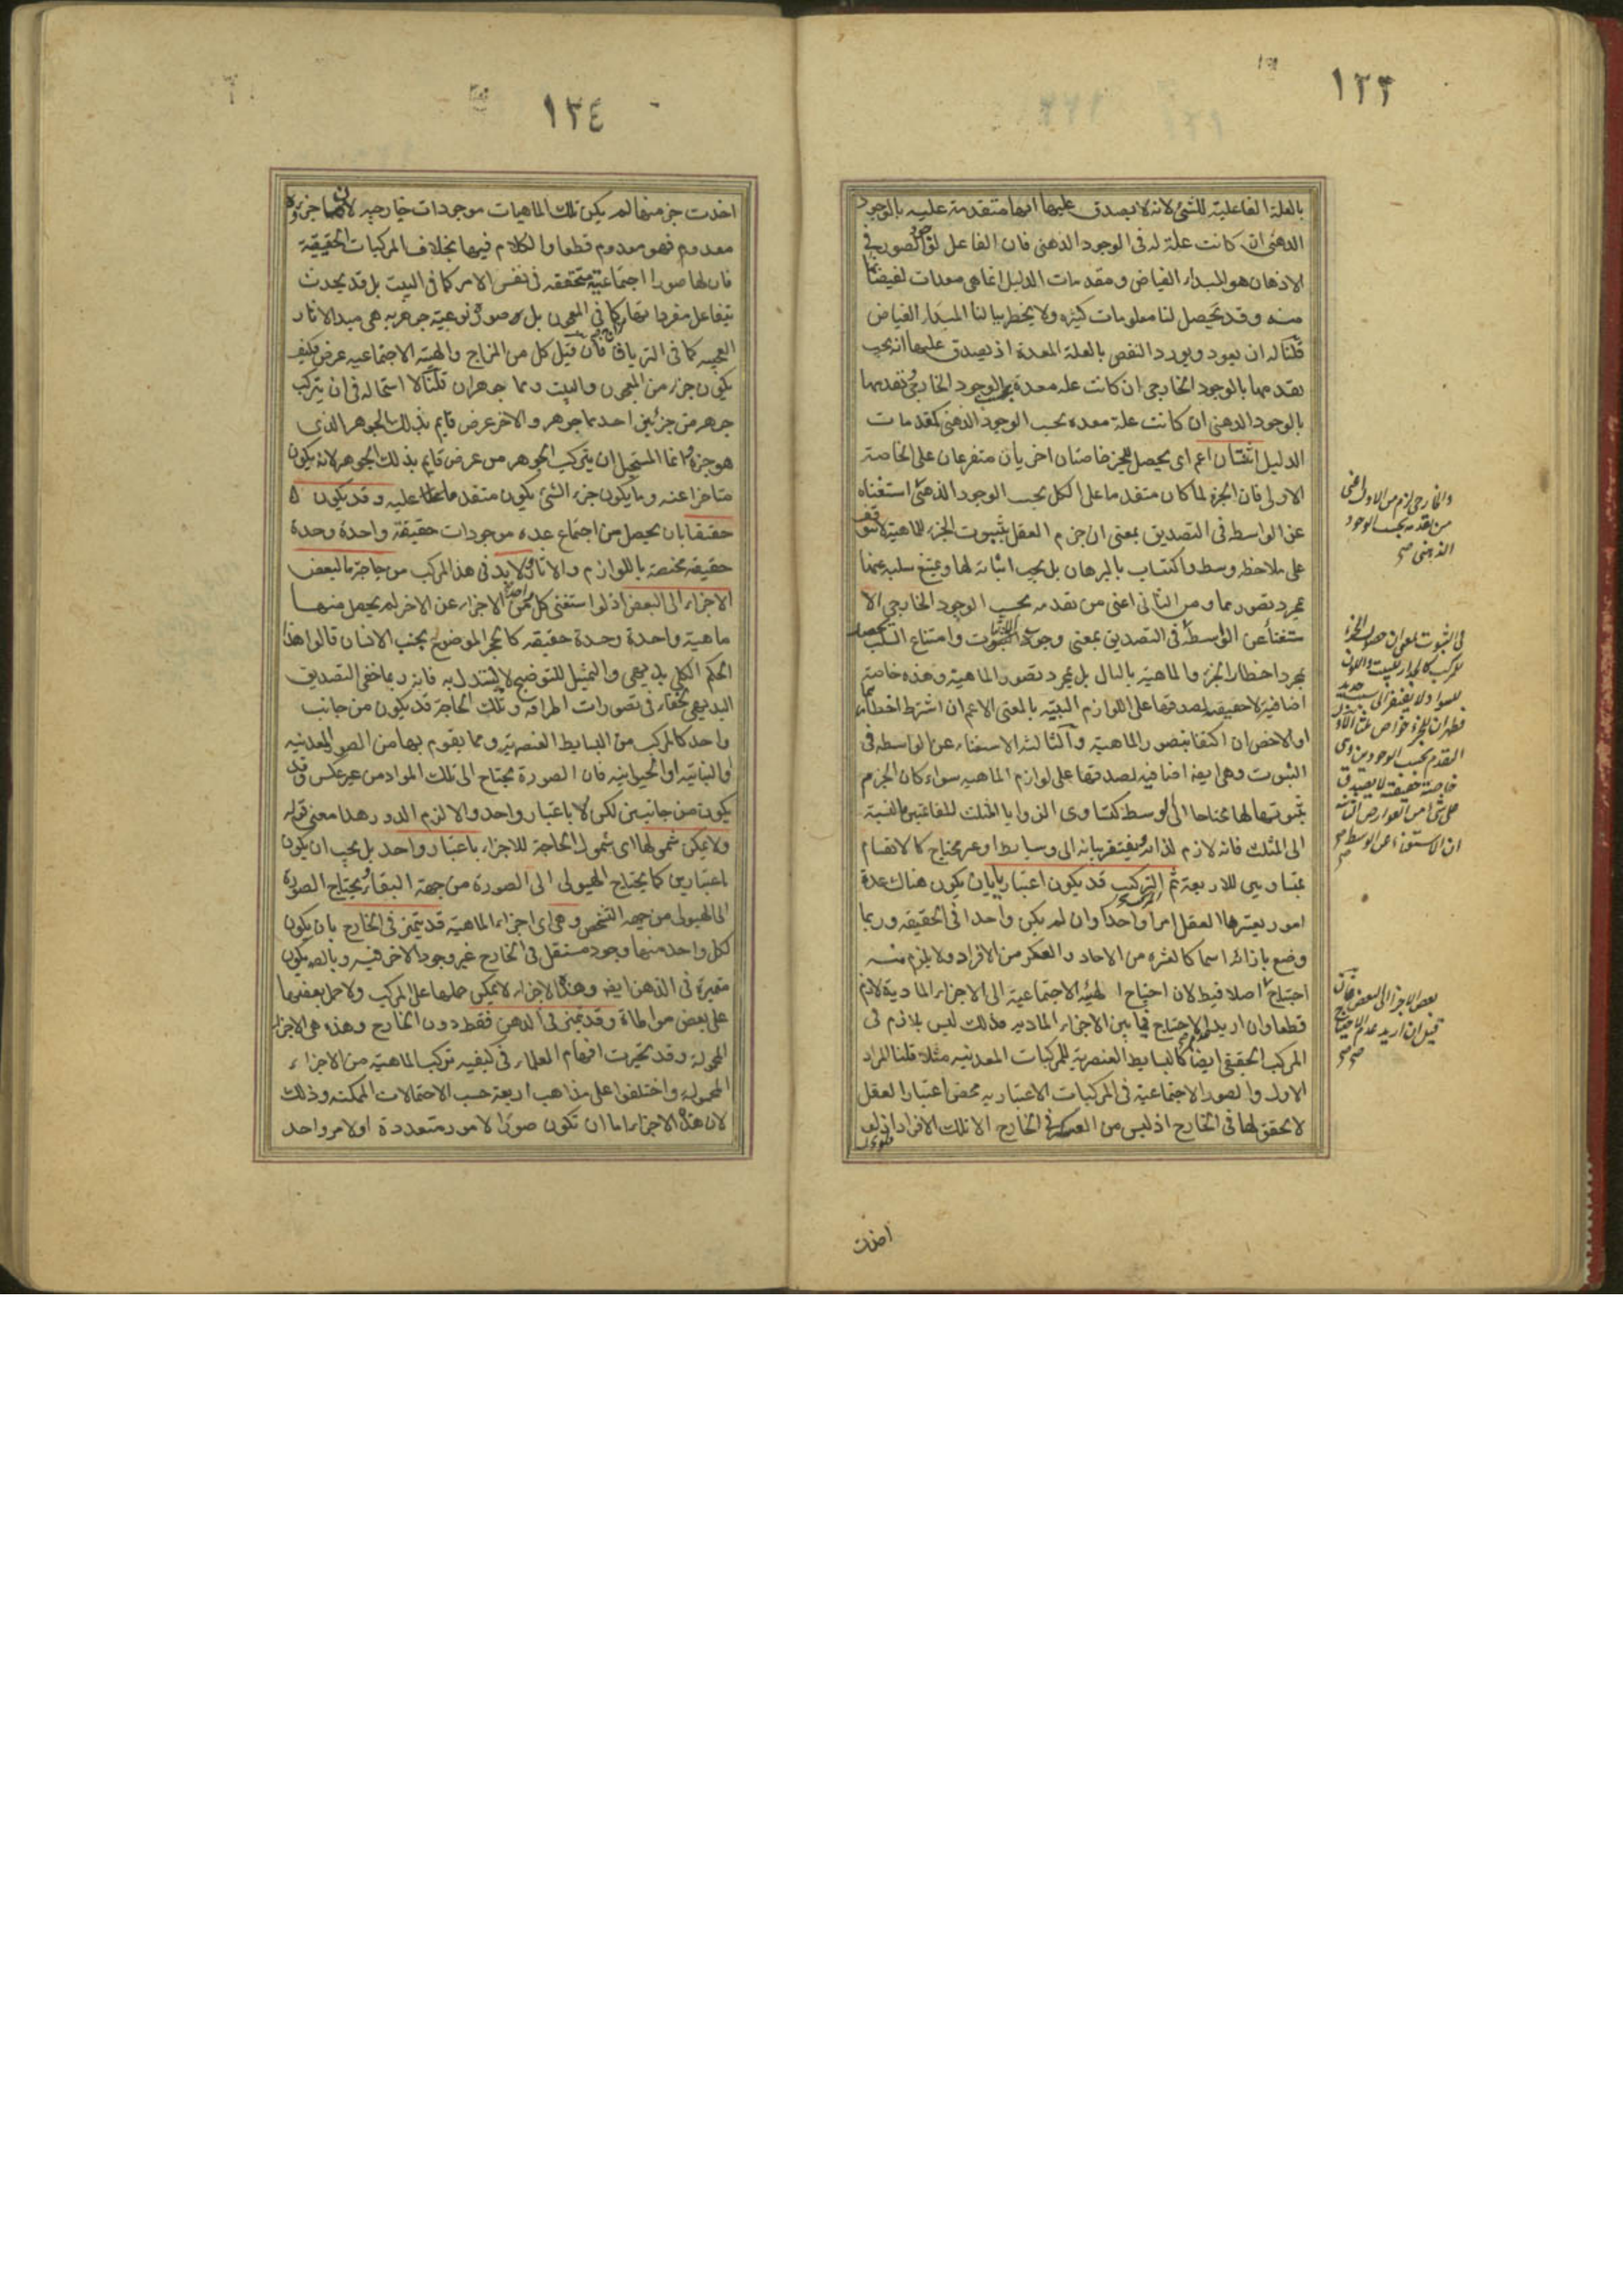 ١٣٣
بالعلة الفاعلية للشئ لانه لا يصدق عليها انها متقدمة عليه بالوجود
الذهنى ان كانت علة له فى الوجود الذهنى فان الفاعل الصور فى
الاذهان هو المبداء الفياض ومقدمات الدليل انما هى معدات لفيضانها
منه وقد تحصل لنا معلومات كثيره ولا يخطر ببالنا المبداء الفياض
قلنا له ان يعود ويورد النقض بالعلة المعدة اذ يصدق عليها انه يجب
تقدمها بالوجود الخارجى ان كانت علة معدة بحسب الوجود الخارجى وتقدمها
بالوجود الذهنى ان كانت علة معده بحسب الوجود الذهنى كمقدمات
الدليل اعم اى يحصل للجزء خاصتان اخريان متفرعتان على الخاصة
الاولى فان الجزء لما كان متقدما على الكل بحسب الوجود الذهنى استغناه
عن الواسطة فى التصديق بمعنى ان جزم العقل بثبوت الجزء للماهية لا يتوقف
على ملاحظه وسط واكتساب بالبرهان بل يجب اثباته لها ويمتنع سلبه عنها
بمجرد تصورهما ومن الثانى اعنى من تقدمه بحسب الوجود الخارجى الا
ستغناء عن الواسطة فى التصديق بمعنى وجوب الثبوت وامتناع السلب
بمجرد اخطار الجزء والماهية بالبال بل بمجرد تصور الماهية وهذه خاصة
اضافية لا حقيقية لصدقها على اللوازم البينة بالمعنى الاعم ان اشترط اخطارهما
او الاخص ان اكتفا بتصور الماهية والثالثة الاستغناء عن الواسطه فى
الثبوت وهى ايضا اضافية لصدقها على لوازم الماهيه سواء كان الجزم
بثبوتها لها محتاجا الى وسط كتساوى الزوايا المثلث للقائمتين بالنسبة
الى المثلث فانه لازم لذاته يفتقر بيانه الى وسايط او غير محتاج كالانقسام
بمتساويين للاربعة ثم التركيب قد يكون اعتباريا بان يكون هناك عدة
امور يعتبرها العقل امرا واحدا وان لم يكن واحدا فى الحقيقه وربما
وضع بازائه اسما كالعشره من الاحاد والعسكر من الافراد ولا يلزم منه
احتياج اصلا فيط لان احتياج الهيئه الاجتماعية الى الاجزاء المادية لازم
قطعا وان اريد الاحتياج فيما بين الاجزاء الماديه فذلك ليس بلازم فى
المركب الحقيقى ايضا كالبسايط العنصرية للمركبات المعدنيه مثلا قلنا المراد
الاول والصور الاجتماعية فى المركبات الاعتباريه محض اعتبار العقل
لا تحقق لها فى الخارج اذ ليس من العسكر فى الخارج الا تلك الافراد
اخذت
والخارجى لزم من الاول اعنى
من تقدمه بحسب الوجود
الذهنى صح
فى الثبوت بمعنى ان حصول الجزء
للمركب كالجدار للبيت واللون
للسواد لا يفتقر الى سبب جديد
فظهر ان للجزء خواص ثلثا الاولى
التقدم بحسب الوجودين وهى
خاصة حقيقة لا يصدق
على شئ من العوارض الثانية
ان الاستغناء عن الواسطة صح
بعض الاجزاء الى البعض فان
قيل ان اريد عدم الاحتياج
صح
١٣٤
اخذت جز منها لم يكن تلك الماهيات موجودات خارجيه لان ما جزؤه
معدوم فهو معدوم قطعا والكلام فيها بخلاف المركبات الحقيقية
فان لها صورا اجتماعية متحققه فى نفس الامر كما فى البيت بل قد يحدث
بتفاعل مفرداتها كما فى المعجون بل صورة نوعية جوهريه هى مبداء الاثار
العجيبه كما فى الترياق فان قيل كل من المزاج والهيئة الاجتماعيه عرض فكيف
يكون جزء من المعجون والبيت وهما جوهران قلنا لا استحاله فى ان يتركب
جوهر من جزئين احدهما جوهر والاخر عرض قايم بذلك الجوهر الذى
هو جزء وانما المستحيل ان يتركب الجوهر من عرض قايم بذلك الجوهر لانه يكون
متاخرا عنه وما يكون جزء الشئ يكون متقدما عليه وقد يكون
حقيقيا بان يحصل من اجتماع عدة موجودات حقيقة واحدة وحدة
حقيقيه مختصة باللوازم والاثار ولا بد فى هذا المركب من حاجة ما لبعض
الاجزاء الى البعض اذ لو استغنى كل من الاجزاء عن الاخر لم يحصل منها
ماهية واحدة وحدة حقيقيه كالحجر الموضوع بجنب الانسان قالوا هذا
الحكم الكلى بديهى والتمثيل للتوضيح لا ليستدل به فانه ربما خفى التصديق
البديهى لخفاء فى تصورات اطرافه وتلك الحاجة قد يكون من جانب
واحد كالمركب من البسايط العنصرية ومما يقوم بها من الصور المعدنيه
والنباتيه او الحيوانيه فان الصورة يحتاج الى تلك المواد من غير عكس وقد
يكون من جانبين لكن لا باعتبار واحد والا لزم الدور هذا معنى قوله
ولا يمكن شمولها اى شمول الحاجة للاجزاء باعتبار واحد بل يجب ان يكون
باعتبارين كما يحتاج الهيولى الى الصورة من جهة البقاء ويحتاج الصورة
الى الهيولى من جهه التشخص وهى اى اجزاء الماهية قد يتميز فى الخارج بان يكون
لكل واحد منها وجود مستقل فى الخارج غير وجود الاخر فيه وبالضرورة يكون
متميزة فى الذهن ايضا وهذه الاجزاء لا يمكن حملها على المركب ولا حمل بعضها
على بعض مواطاة وقد يتميز فى الذهن فقط دون الخارج وهذه هى الاجزاء
المحمولة وقد تحيرت افهام العلماء فى كيفيه تركب الماهية من الاجزاء
المحموله واختلفوا على مذاهب اربعة حسب الاحتمالات الممكنه وذلك
لان هذه الاجزاء اما ان تكون صورا لامور متعددة او لامر واحد